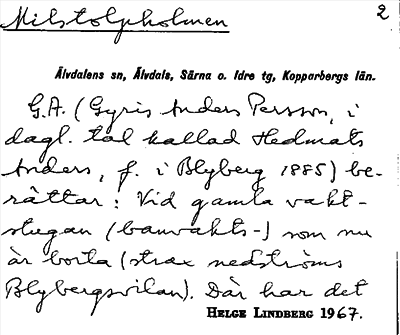 Milstolpholmen
2
Älvdalens sn, Älvdals, Särna o. Idre tg, Kopparbergs län.
G.A. (Gyris Anders Persson, i
dagl. tal kallad Hedmats
Anders, f. i Blyberg 1885) be-
rättar: Vid gamla vakt-
stugan (banvakts-) som nu
är borta (strax nedströms
Blybergsvilan). Där har det
HELGE LINDBERG 1967.